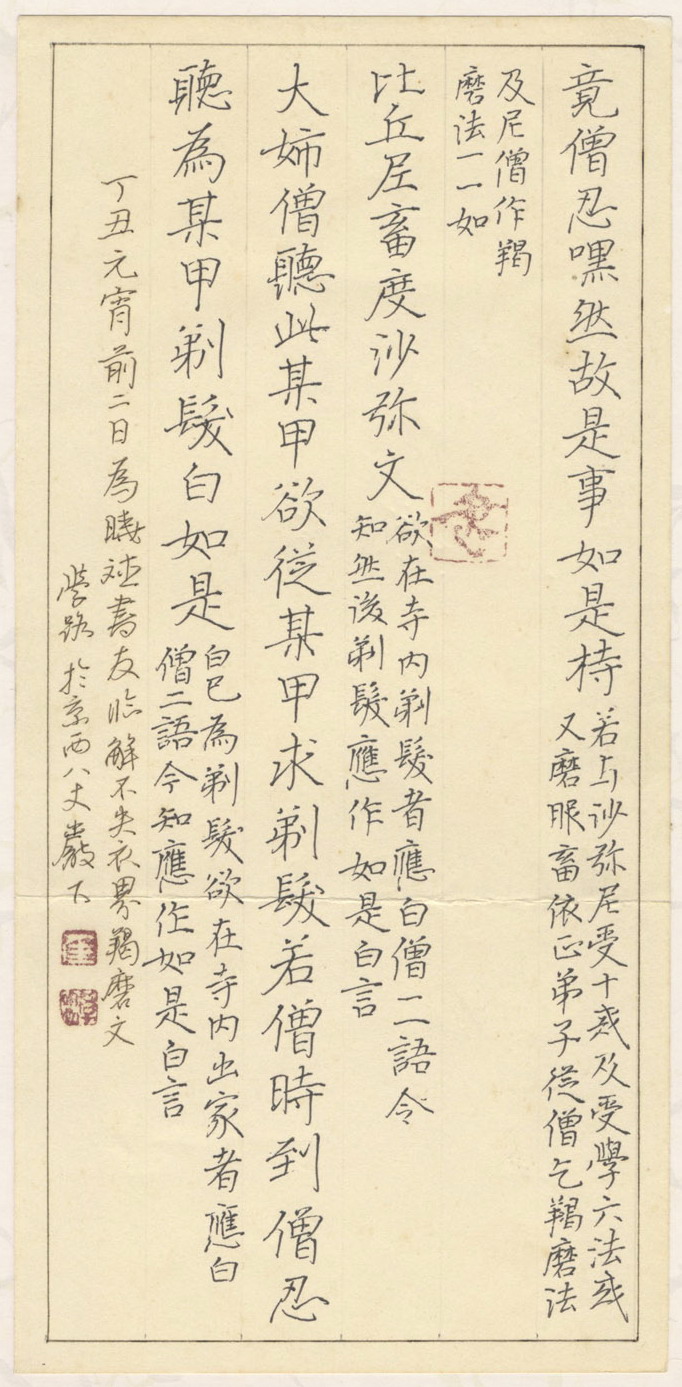 竟僧忍嘿然故是事如是持
若与沙弥尼受十戒及受學六法戒
又磨眼畜依正弟子從僧乞羯磨法
及尼僧作羯
磨法一一如
比丘尼畜度沙弥文
欲在寺内剃髮者應白僧二語令
知然後剃髮應作如是白言
大姉僧聽此某甲欲從某甲求剃髮若僧時到僧忍
聽為某甲剃髮白如是
白已為剃髮欲在寺内出家者應白
僧二語令知應作如是白言
丁丑元宵前二日為曉書友臨解不失衣界羯磨文
學路於京西八丈巖下